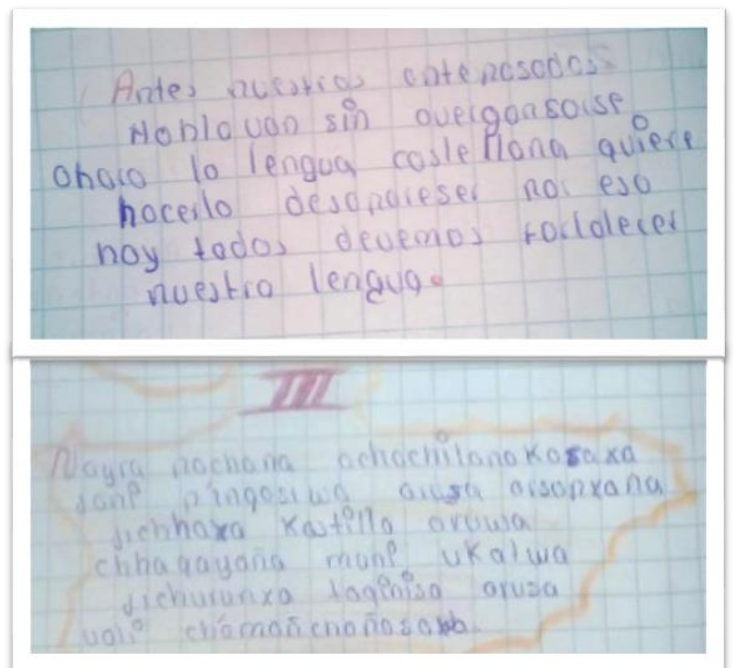 Antes nuestros antepasados
Hablavan sin avergonsarse
ahora la lengua castellana quiere
hacerlo desapareser por eso
hoy todos devemos fortalecer
nuestra lengua.
III
Nayra pachana achachilanakasaxa
jani p'inqasiwa arusa arsapxana
jichhaxa kastilla aruwa
chhaqayaña muni ukatwa
jichuruxa taqinisa arusa
wali ch'amañchañasawa.